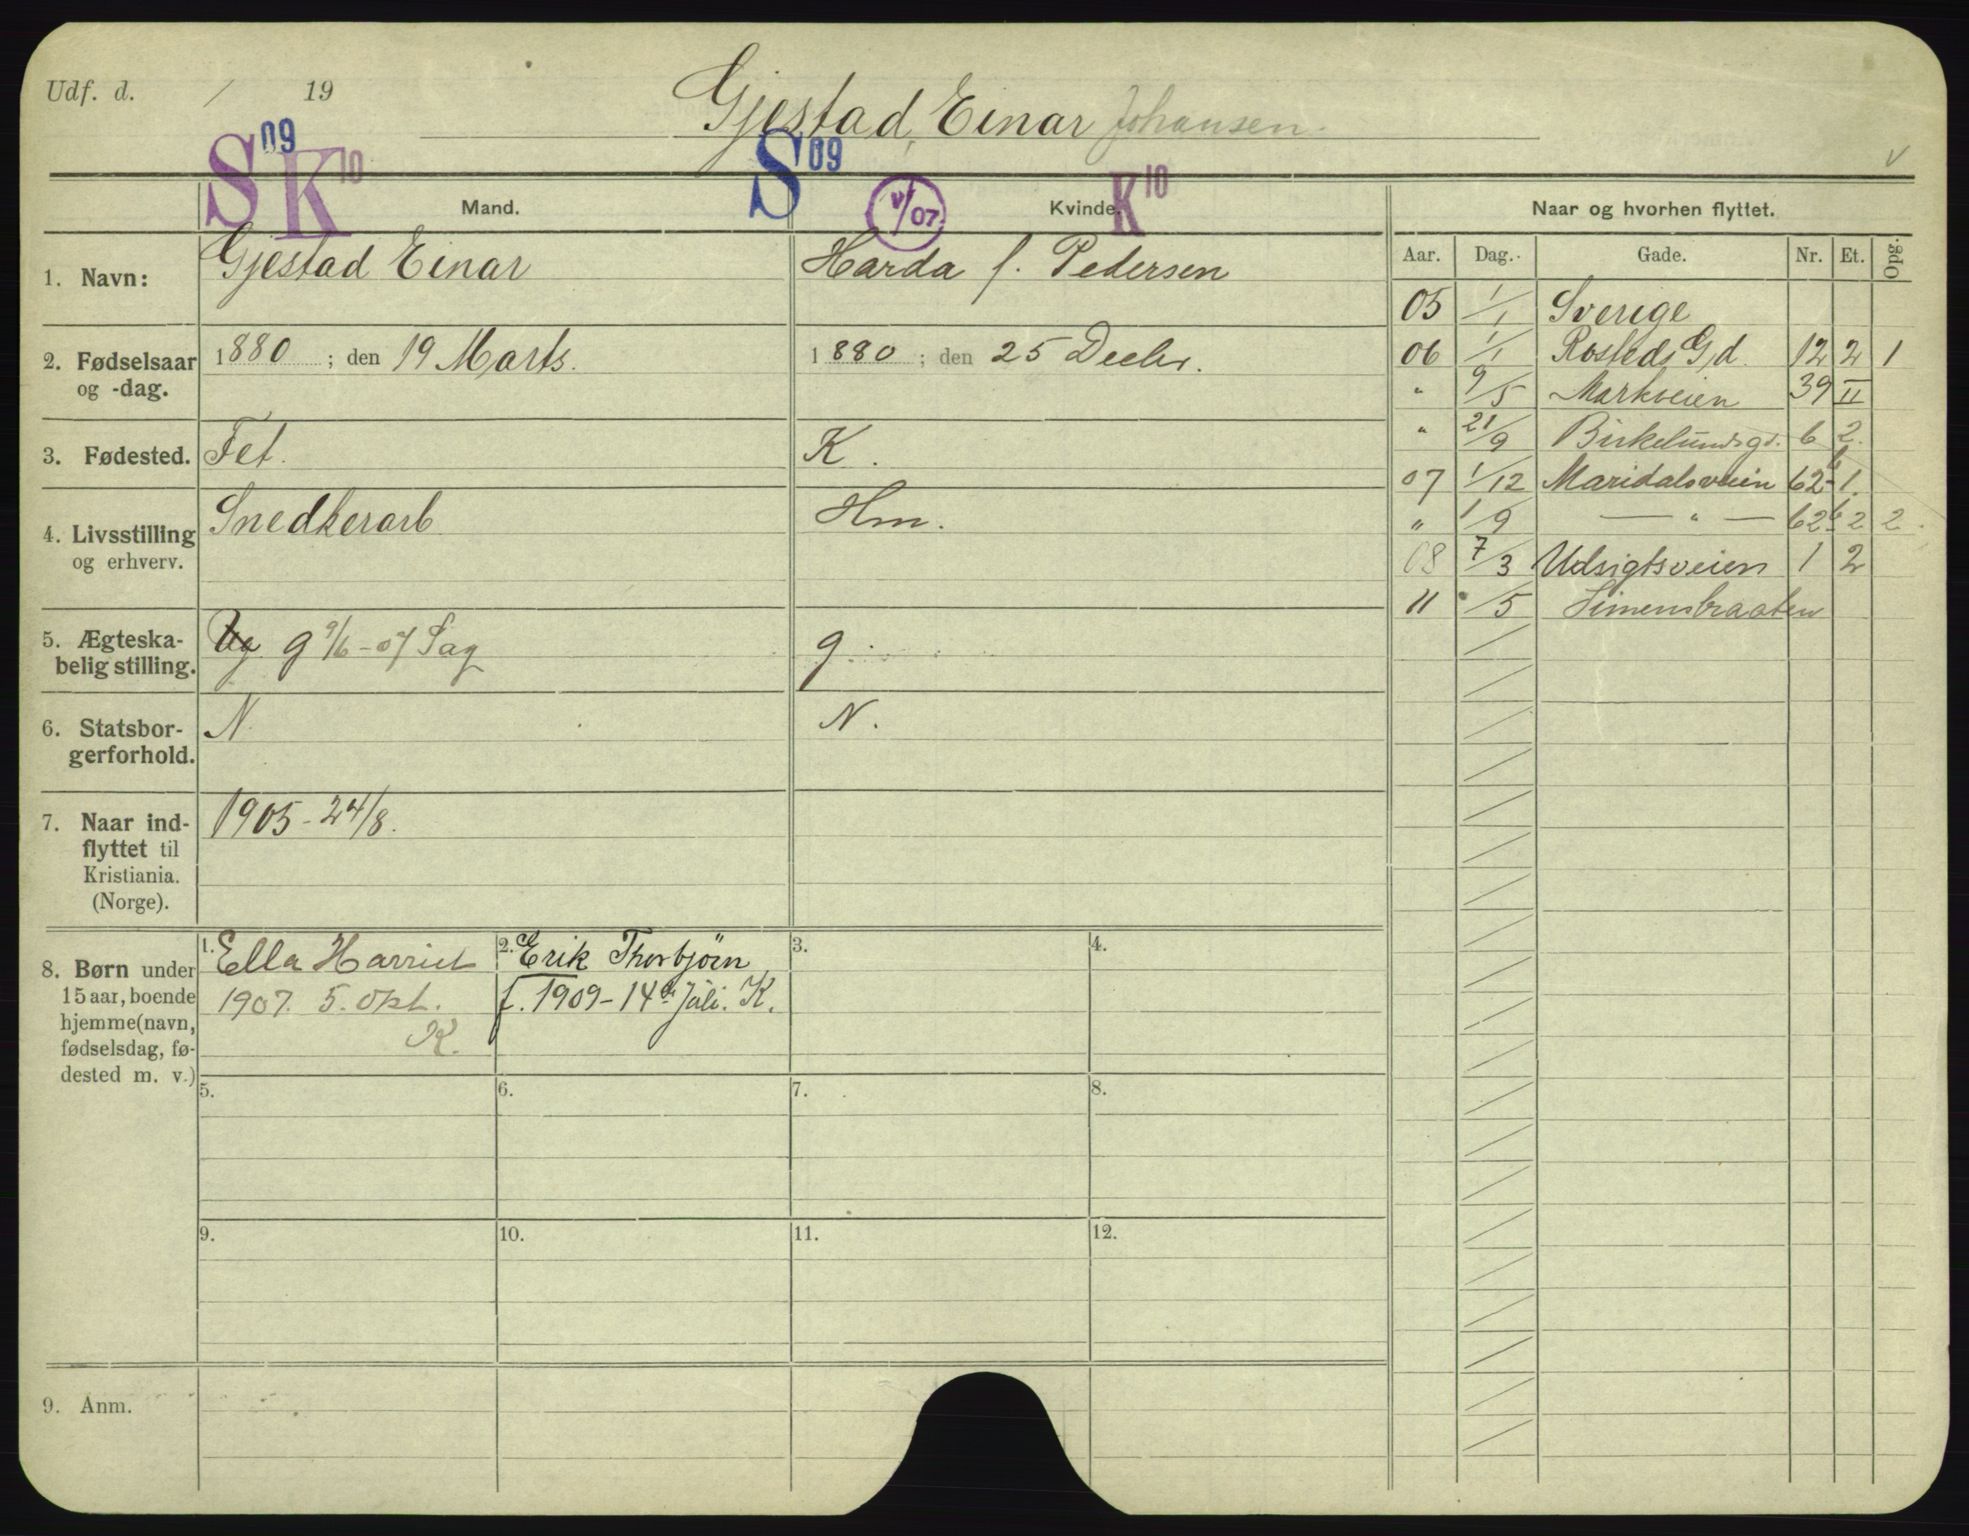 Udf. d. / 19
Gjestad, Einar Johansen.
S 09 K 10 S 09 v/07 K 10 v
Mand. Kvinde. Naar og hvorhen flyttet.
Aar. Dag. Gade. Nr. Et. Opg.
1. Navn: Gjestad Einar Harda f. Pedersen
2. Fødselsaar og -dag. 1880; den 19 Marts. 1880; den 25 Decbr.
3. Fødested. Fet. K.
4. Livsstilling og erhverv. Snedkerarb Hm.
5. Ægteska-
belig stilling. Ug. g 9/6-07 Sag g.
6. Statsbor-
gerforhold. N. N.
7. Naar ind-
flyttet til
Kristiania.
(Norge).
1905-24/8.
8. Børn under
15 aar, boende
hjemme (navn,
fødselsdag, fø-
dested m. v.)
1. Ella Harriet
1907. 5. Okt.
K.
2. Erik Thorbjörn
f. 1909-14de Juli. K.
3.
4.
5.
6.
7.
8.
9.
10.
11.
12.
9. Anm.
05 1/1 Sverige
06 1/1 Rosteds Gd. 12 2 1
" 9/5 Markveien 39 II
" 21/9 Birkelundsgd. 6 2.
07 1/12 Maridalsveien 62b 1.
" 1/9 — " — 62b 2 2.
08 7/3 Udsigtsveien 1 2
11 /5 Simensbraaten